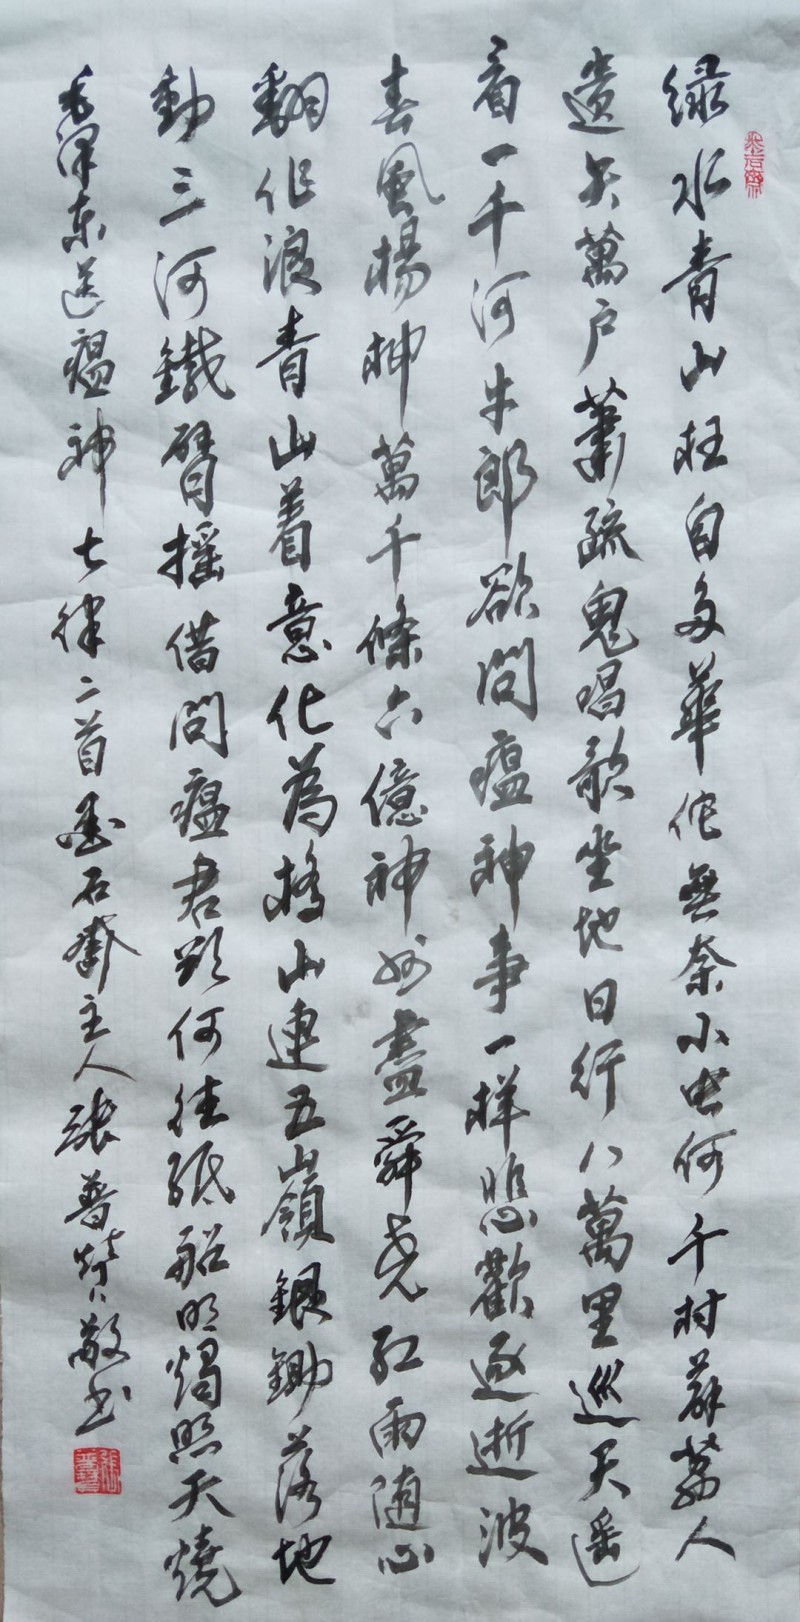 绿水青山枉自多華佗無奈小虫何千村薜荔人
遗矢萬户蕭疏鬼唱歌坐地日行八萬里巡天遥
看一千河牛郎欲問瘟神事一样悲歡逐逝波
春風楊柳萬千條六億神州盡舜尧紅雨随心
翻作浪青山着意化為橋山連五嶺銀鋤落地
動三河鐵臂摇借問瘟君欲何往紙船明燭照天燒
毛澤东送瘟神七律二首 石齋主人張普贊敬书